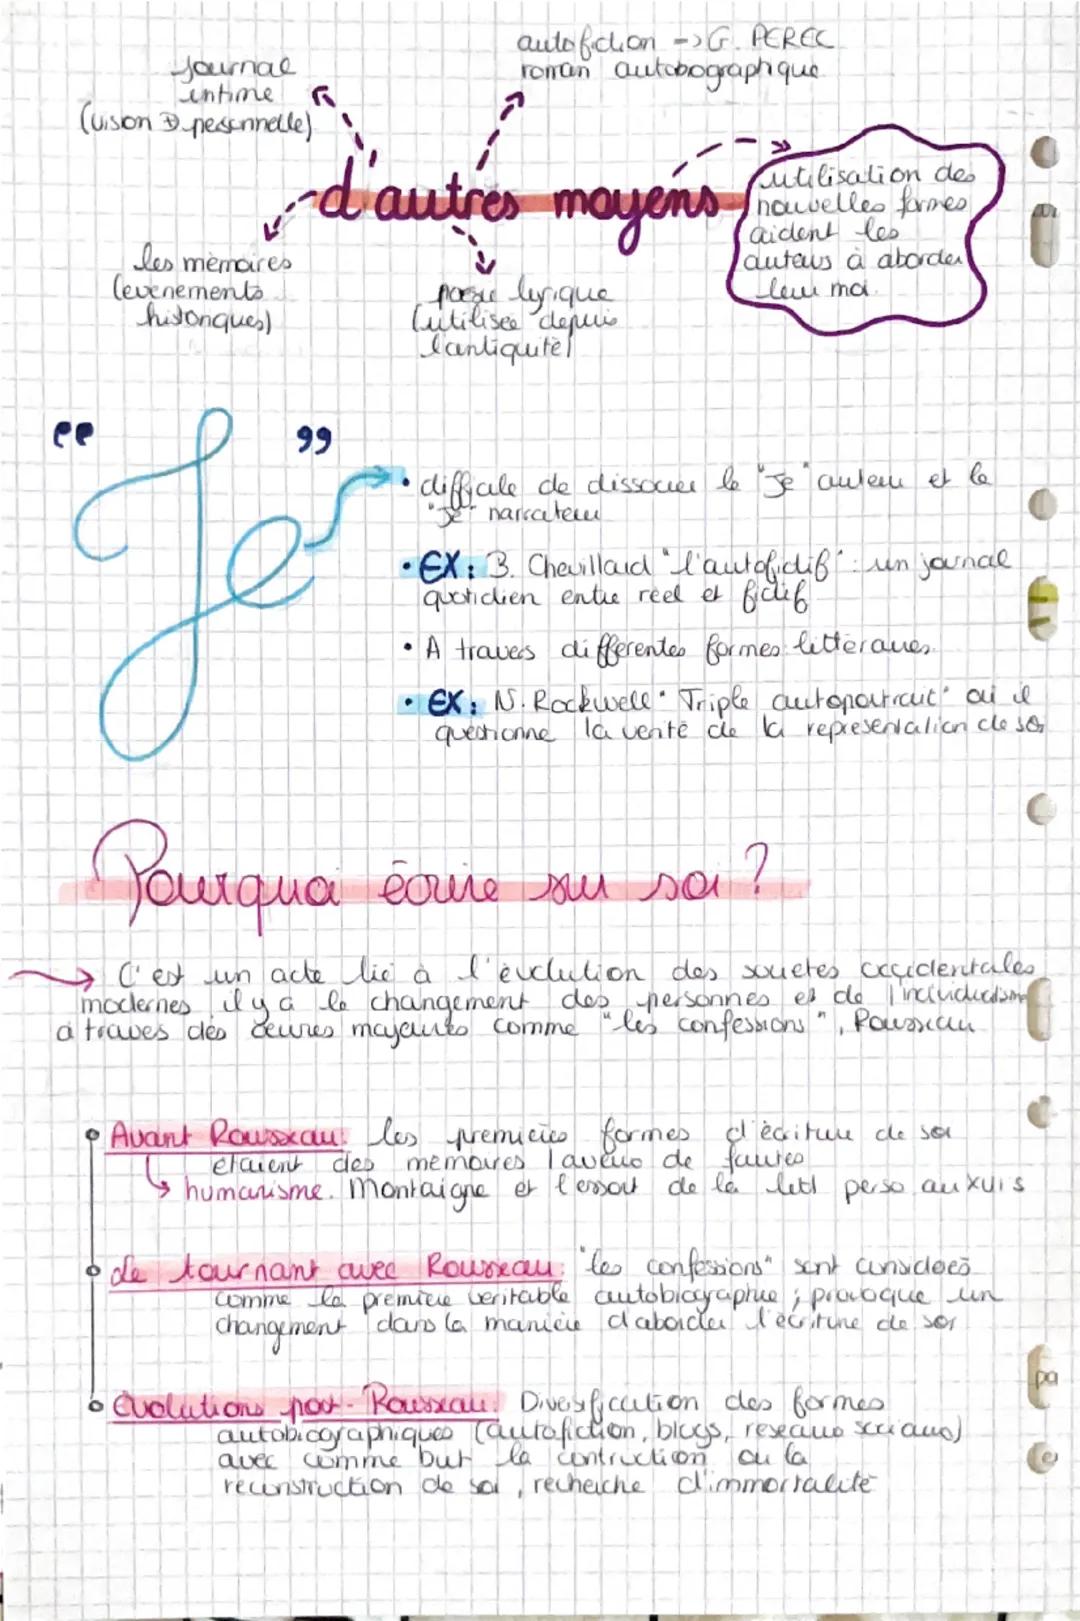 autofiction -> G. PEREC
roman autobographique
Journal
intime
(vision personnelle)
d'autres moyens
utilisation des
nouvelles formes
aident les
auteurs à aborder
leur moi.
les mémoires
(evenements
historiques)
poesie lyrique
(utilisée depuis
l'antiquité)
"Je"
• difficile de dissocier le "Je" auteur et le
"Je" narrateur
• EX: B. Chevillard "l'autofictif": un journal
quotidien entre réel et fictif
• A travers différentes formes littéraires.
• EX: N. Rockwell "Triple autoportrait" où il
questionne la vérité de la representation de soi
Pourquoi écrire sur soi ?
→ C'est un acte lié à l'évolution des societes occidentales
modernes, il y a le changement des personnes et de l'individualisme
à travers des oeuvres majeures comme "les confessions", Rousseau
Avant Rousseau: les premières formes d'écriture de soi
étaient des mémoires / aveux de fautes
↳ humanisme. Montaigne et l'essort de la litt perso au XVIs
Le tournant avec Rousseau: "les confessions" sont considérés
comme la première veritable autobiographie ; provoque un
changement dans la manière d'aborder l'écriture de soi
Evolutions post-Rousseau: Diversification des formes
autobiographiques (autofiction, blogs, reseaux sociaux)
avec comme but la contruction ou la
reconstruction de soi, recherche d'immortalité
pa